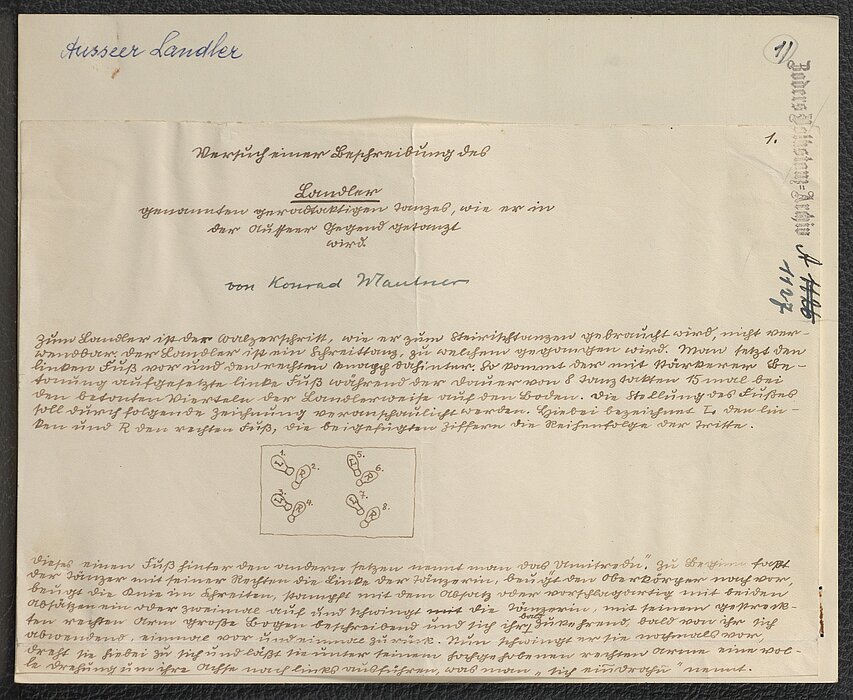 Ausseer Landler
1)
Zoders Volkstanz-Archiv
A 1127
1.
Versuch einer Beschreibung des
Landler
genannten geradtaktigen Tanzes, wie er in
der Ausseer Gegend getanzt
wird
von Konrad Mautner
Zum Landler ist der Walzerschritt, wie er zum Steirischtanzen gebraucht wird, nicht ver-
wendbar. Der Landler ist ein Schreittanz, zu welchem gegangen wird. Man setzt den
linken Fuß vor und den rechten knapp dahinter. So kommt der mit stärkerer Be-
tonung aufgesetzte linke Fuß während der Dauer von 8 Tanztakten 15 mal bei
den betonten Vierteln der Landlerweise auf den Boden. Die Stellung des Fußes
soll durch folgende Zeichnung veranschaulicht werden. Hiebei bezeichnet L den lin-
ken und R den rechten Fuß, die beigefügten Ziffern die Reihenfolge der Tritte.
1. L R 2. 5. L R 6.
3. L R 4. 7. L R 8.
Dieses einen Fuß hinter den andern setzen nennt man das Umitredn". Zu Beginn faßt
der Tänzer mit seiner Rechten die Linke der Tänzerin, beugt den Oberkörper nach vor,
beugt die Knie im Schreiten, stampft mit dem Absatz oder vorschlagartig mit beiden
Absätzen ein oder zweimal auf und schwingt mit die Tänzerin, mit seinem gestreck-
ten rechten Arm große Bogen beschreibend und sich ihr bald zukehrend, bald von ihr sich
abwendend, einmal vor und einmal zurück. Nun schwingt er sie nochmals vor,
dreht sie hiebei zu sich und läßt sie unter seinem hochgehobenen rechten Arme eine vol-
le Drehung um ihre Achse nach links ausführen, was man „sich eindrahn" nennt.